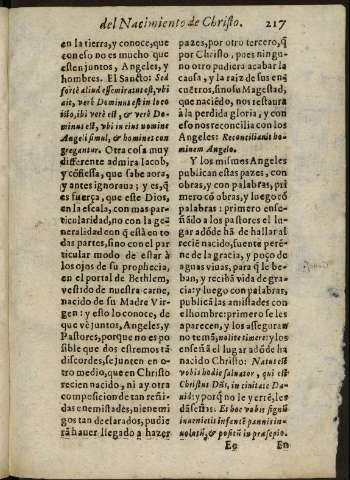 del Nacimiento de Christo. 217
en la tierra, y conoce, que
con eso no es mucho que
estèn juntos, Angeles, y
hombres. El Sancto: Sed
fortè aliud essemiratus est, vbi
ait, verè Dominus est in loco
isto, ibi verè est, & verè Do-
minus est, vbi in eius nomine
Angeli simul, & homines con
gregantur. Otra cosa muy
differente admira Iacob,
y cõfiessa, que sabe aora,
y antes ignoraua; y es, q̃
es fuerça, que este Dios,
en la escala, con mas par-
ticularidad, no con la ge-
neralidad con q̃ està en to
das partes, sino con el par
ticular modo de estar à
los ojos de su prophecia,
en el portal de Bethlem,
vestido de nuestra carne,
nacido de su Madre Vir-
gen: y esto lo conoce, de
que vè juntos, Angeles, y
Pastores, porque no es po
sible que dos estremos tã
discordes, se junten en o-
tro medio, que en Christo
recien nacido, ni ay otra
composicion de tan reñi-
das enemistades, ni enemi
gos tan declarados, pudie
rã hauer llegado a hazer
pazes, por otro tercero, q̃
por Christo, pues ningu-
no otro pudiera acabar la
causa, y la raiz de sus en-
cuẽtros, sino su Magestad,
que naciẽdo, nos restaura
à la perdida gloria, y con
eso nos reconcilia con los
Angeles: Reconciliauit ho-
minem Angelo.
Y los mismos Angeles
publican estas pazes, con
obras, y con palabras, pri
mero cõ obras, y luego cõ
palabras: primero ense-
ñãdo a los pastores el lu-
gar adõde hã de hallar al
reciẽ nacido, fuente perẽ-
ne de la gracia, y poço de
aguas viuas, para q̃ le be-
ban, y recibã vida de gra-
cia: y luego con palabras,
publicã las amistades con
el hombre: primero se les
aparecen, y los asseguran
no temã, nolite timere: y los
enseñã el lugar adõde ha
nacido Christo: Natus est
vobis hodie saluator, qui est
Christus Dñs, in ciuitate Da-
uid: y porq̃ no le yerrẽ, les
dã señas: Et hoc vobis signũ
inuenietis infantẽ pannis in-
uolutũ, & positũ in præsepio.
Ee En